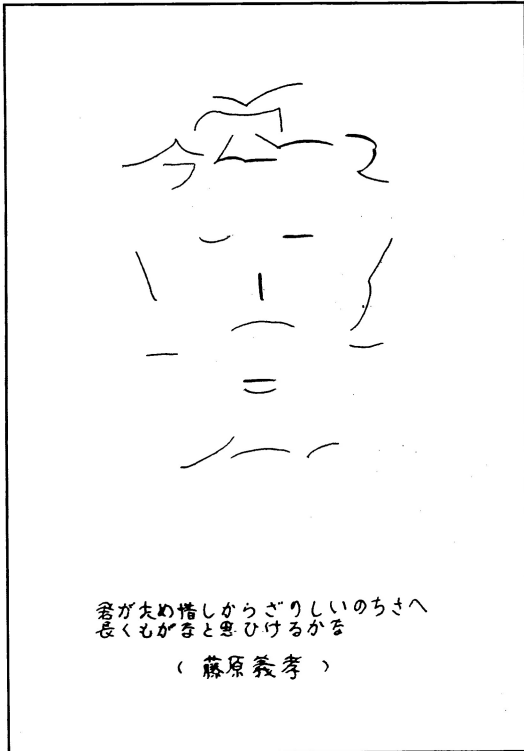 君がため惜しからざりしいのちさへ
長くもがなと思ひけるかな
（藤原義孝）